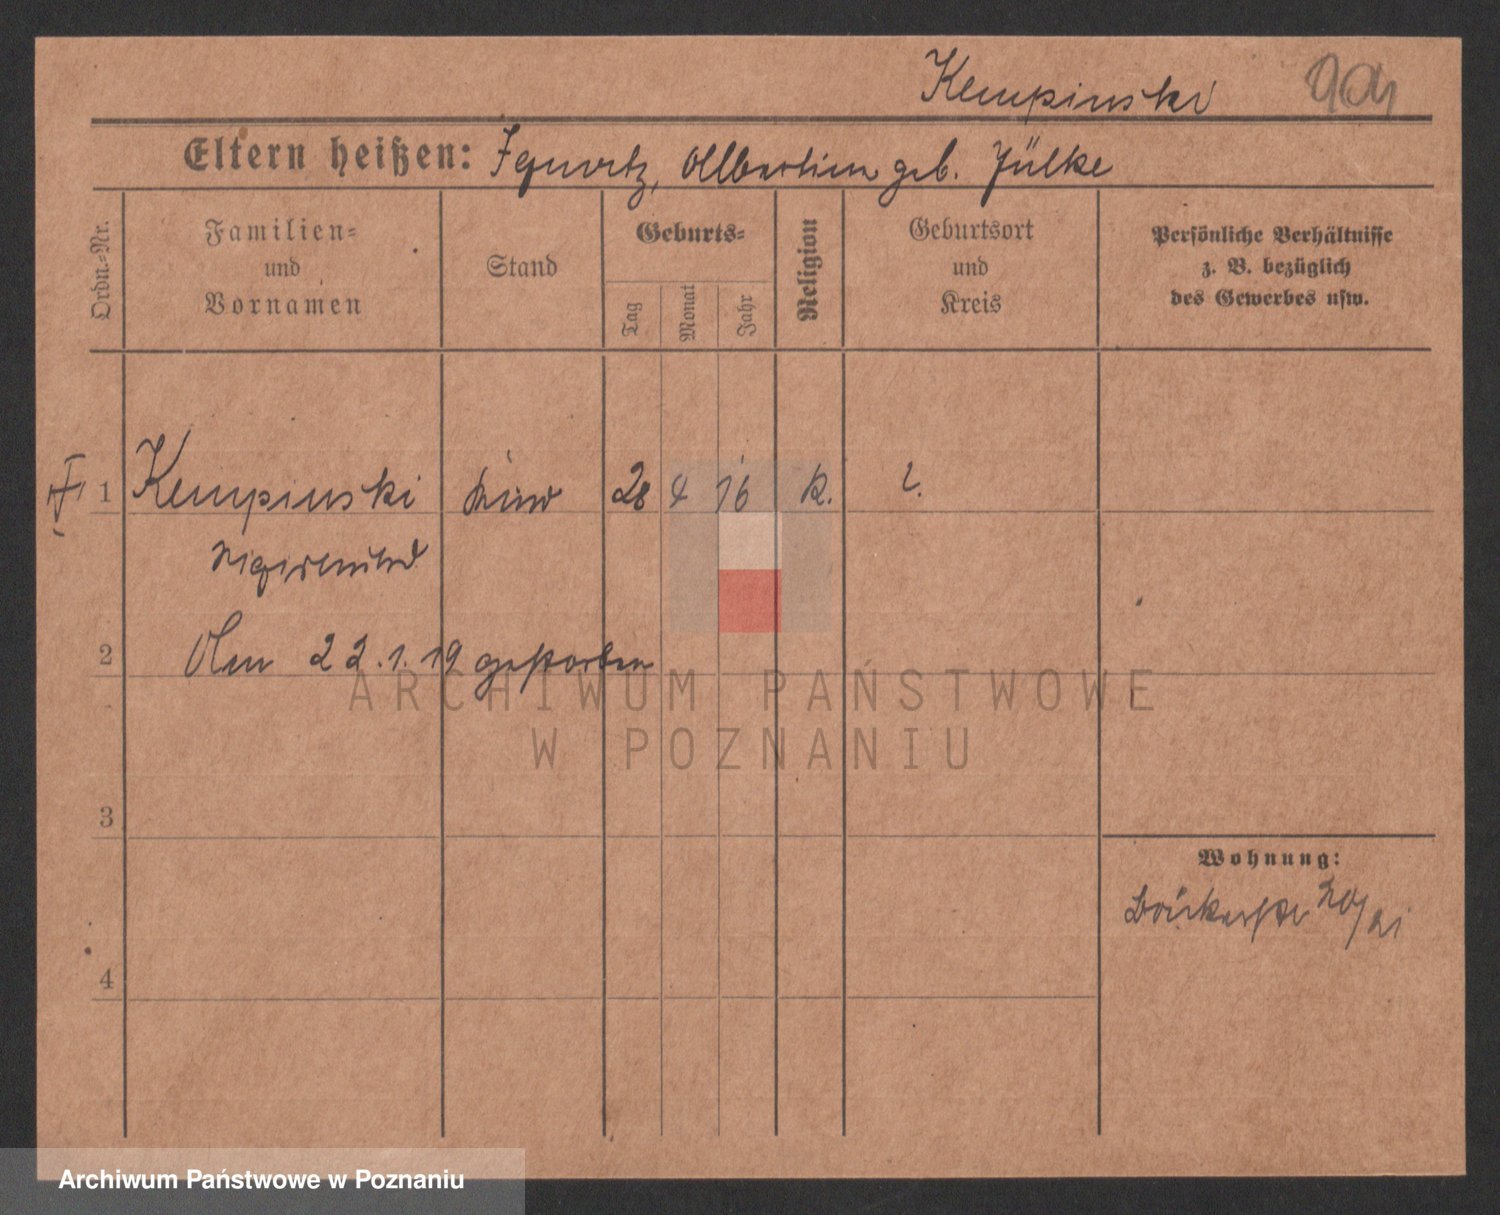 Kempinski
Eltern heißen: Ignatz, Albertine geb. Jülke
Ordn.-Nr.
Familien-
und
Vornamen
Stand
Geburts-
Tag
Monat
Jahr
Religion
Geburtsort
und
Kreis
Persönliche Verhältnisse
z. B. bezüglich
des Gewerbes usw.
1 Kempinski Kind 28 4 16 k.
Sigismund
2 Am 22.1.19 gestorben
ARCHIWUM PAŃSTWOWE
W POZNANIU
3
Wohnung:
Bäckerstr 20/21
4
Archiwum Państwowe w Poznaniu